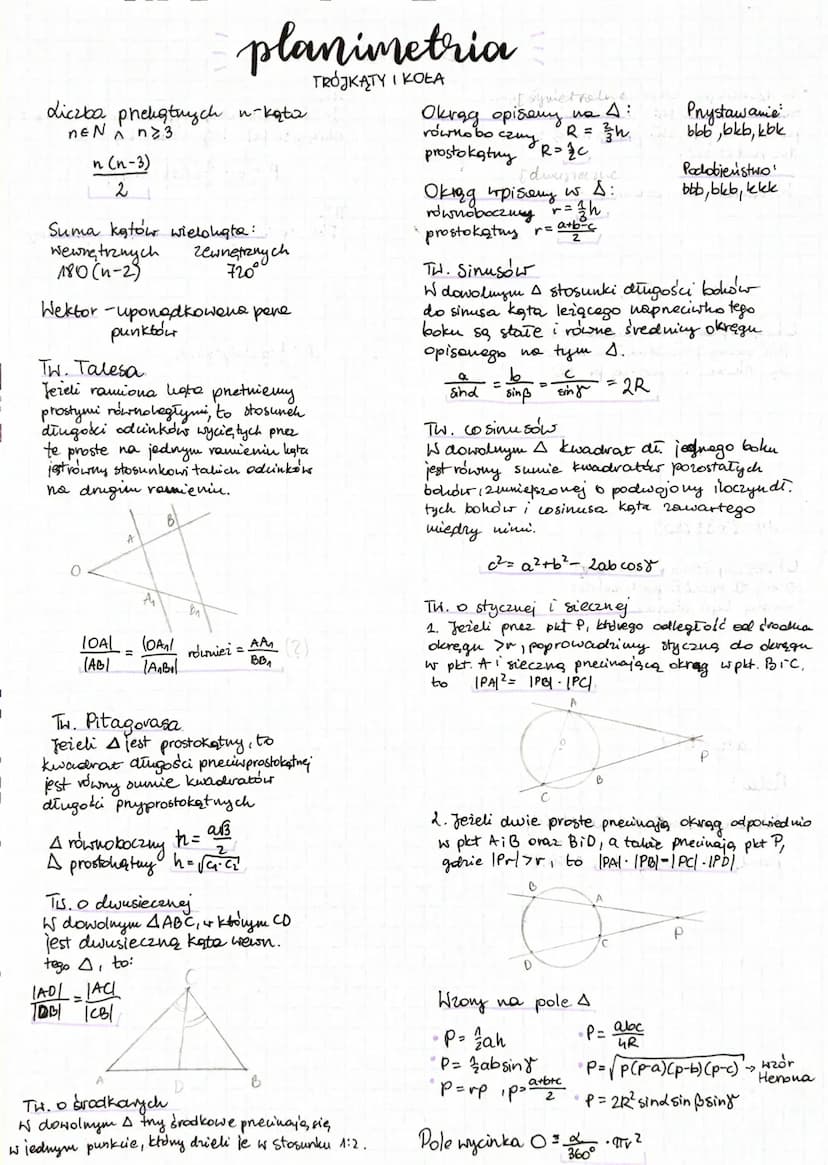 planimetria
TRÓJKĄTY I KOŁA
Liczba przekątnych n-kąta
n∈N ∧ n≥3
n(n-3)/2
Suma kątów wielokąta:
wewnętrznych zewnętrznych
180(n-2) 720°
Wektor - uporządkowana para
punktów
Tw. Talesa
Jeżeli ramiona kąta przetniemy
prostymi równoległymi, to stosunek
długości odcinków wyciętych przez
te proste na jednym ramieniu kąta
jest równy stosunkowi takich odcinków
na drugim ramieniu.
B
A
O
A₁
B₁
|OA|/|AB| = |OA₁|/|A₁B₁| również = AA₁/BB₁ (?)
Tw. Pitagorasa
Jeżeli Δ jest prostokątny, to
kwadrat długości przeciwprostokątnej
jest równy sumie kwadratów
długości przyprostokątnych
Δ równoboczny h = a√3/2
Δ prostokątny h = √c₁·c₂
Tw. o dwusiecznej
W dowolnym ΔABC, w którym CD
jest dwusieczną kąta wewn.
tego Δ, to:
|AD|/|DB| = |AC|/|CB|
C
A D B
Tw. o środkowych
W dowolnym Δ trzy środkowe przecinają się
w jednym punkcie, który dzieli je w stosunku 1:2.
Okrąg opisany na Δ:
równoboczny R = 2/3h
prostokątny R = 1/2c
[dwusieczne
Okrąg wpisany w Δ:
równoboczny r = 1/3h
prostokątny r = a+b-c/2
Przystawanie:
bbb, bkb, kbk
Podobieństwo:
bbb, bkb, kkk
Tw. Sinusów
W dowolnym Δ stosunki długości boków
do sinusa kąta leżącego naprzeciwko tego
boku są stałe i równe średnicy okręgu
opisanego na tym Δ.
a/sinα = b/sinβ = c/sinγ = 2R
Tw. cosinusów
W dowolnym Δ kwadrat dł. jednego boku
jest równy sumie kwadratów pozostałych
boków, zmniejszonej o podwojony iloczyn dł.
tych boków i cosinusa kąta zawartego
między nimi.
c² = a²+b² - 2ab cosγ
Tw. o stycznej i siecznej
1. Jeżeli przez pkt P, którego odległość od środka
okręgu >r, poprowadzimy styczną do okręgu
w pkt. A i sieczną przecinającą okrąg w pkt. B i C,
to |PA|² = |PB|·|PC|
A
O
P
B
C
2. Jeżeli dwie proste przecinają okrąg odpowiednio
w pkt A i B oraz B i D, a także przecinają pkt P,
gdzie |Pr|>r, to |PA|·|PB|=|PC|·|PD|
B
A
P
C
D
Wzory na pole Δ
• P = 1/2ah
• P = 1/2ab sinγ
• P = rp, p = a+b+c/2
• P = abc/4R
• P = √p(p-a)(p-b)(p-c) → wzór
Herona
• P = 2R² sinα sinβ sinγ
Pole wycinka O = α/360° · πr²